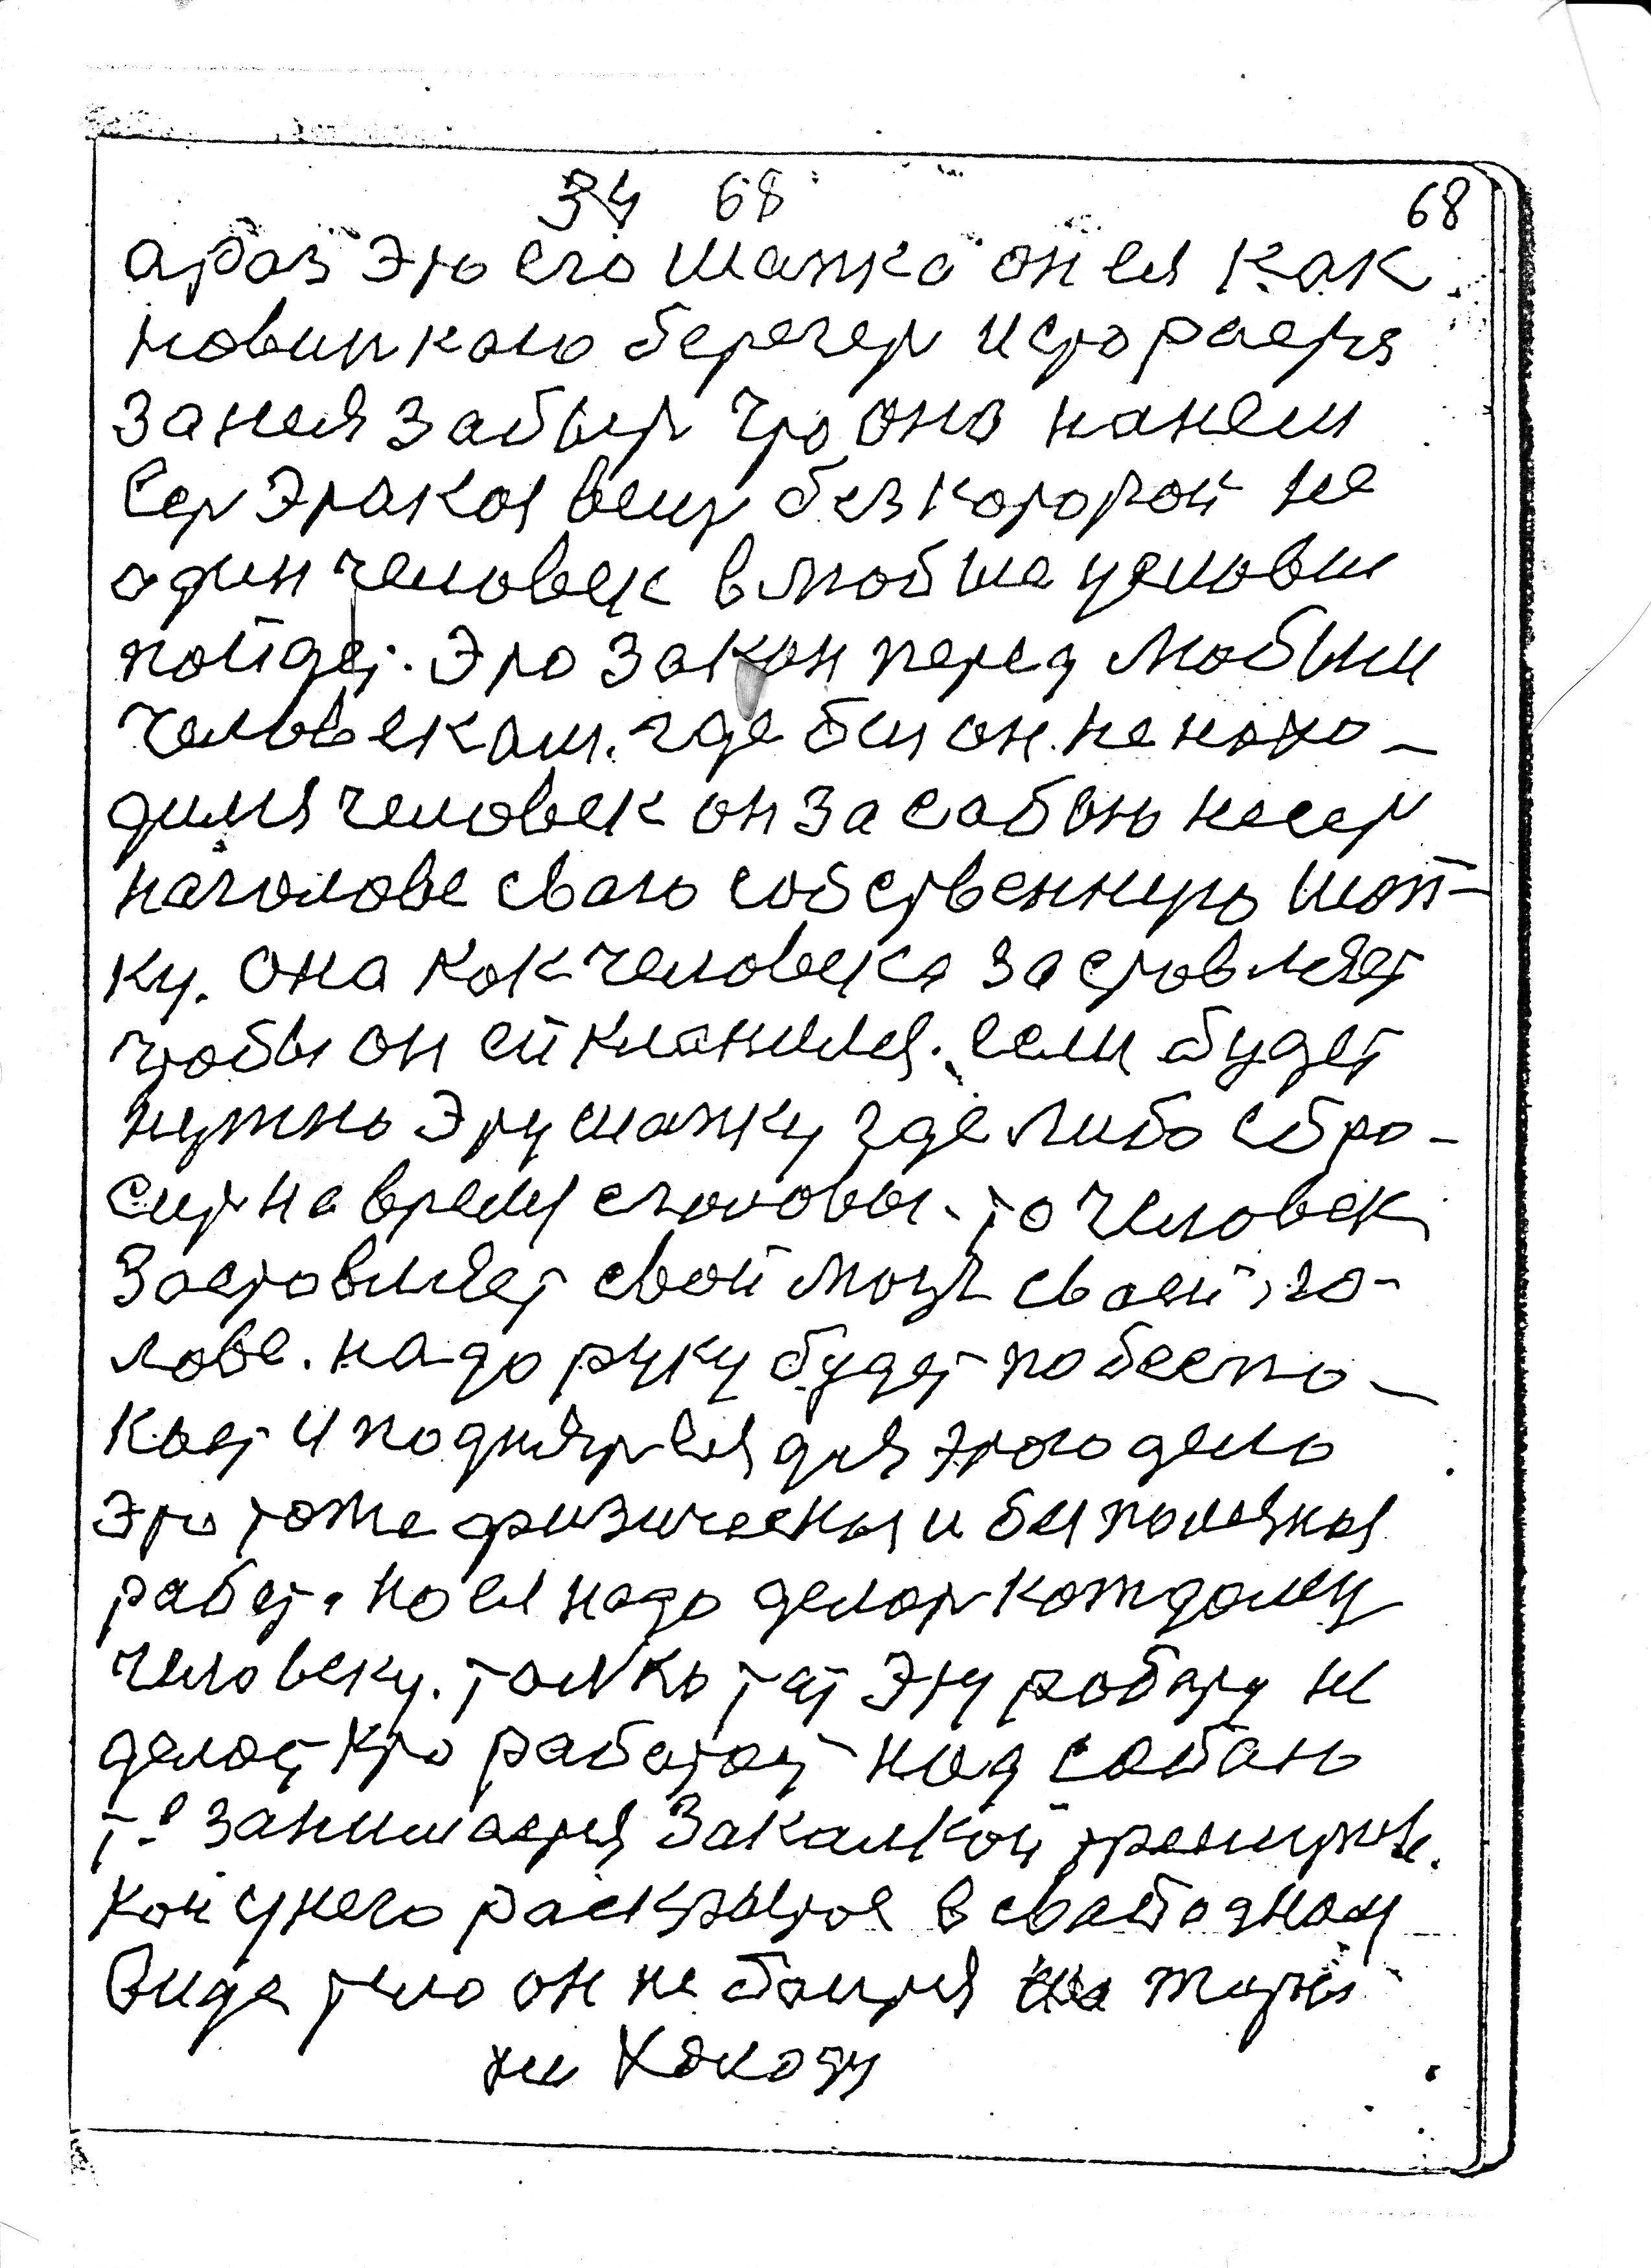 34 68 68
а раз это его шапка он ея как
новинкаю бережет и стораетя
за нея забыт что она на нем
Сет Этакоя вещ без которой не
один человек в любыа условии
пойдет. Это закон перед любыи
человекам. где бы он. не нахо-
дился человек он за сабою несет
на голове сваю собственную шап-
ку. Она как человека заставляет
чтобы он ей кланился. если будет
нужно эту шапку где либо сбро-
сит на время с головы. то человек
Заставляет свой мозг своей го-
лове. надо руку будет побеспо-
коет и поднять ея для этого дела
это тоже физическая и бы полезная
работ. но ея надо делат каждому
человеку. толко тат эту работу не
делает кто работает над сабаю
т-е занимается Закалкой тренировк.
кой у него раскрытое в свабодном
Виде тело он не боится не жары
ни Холоду